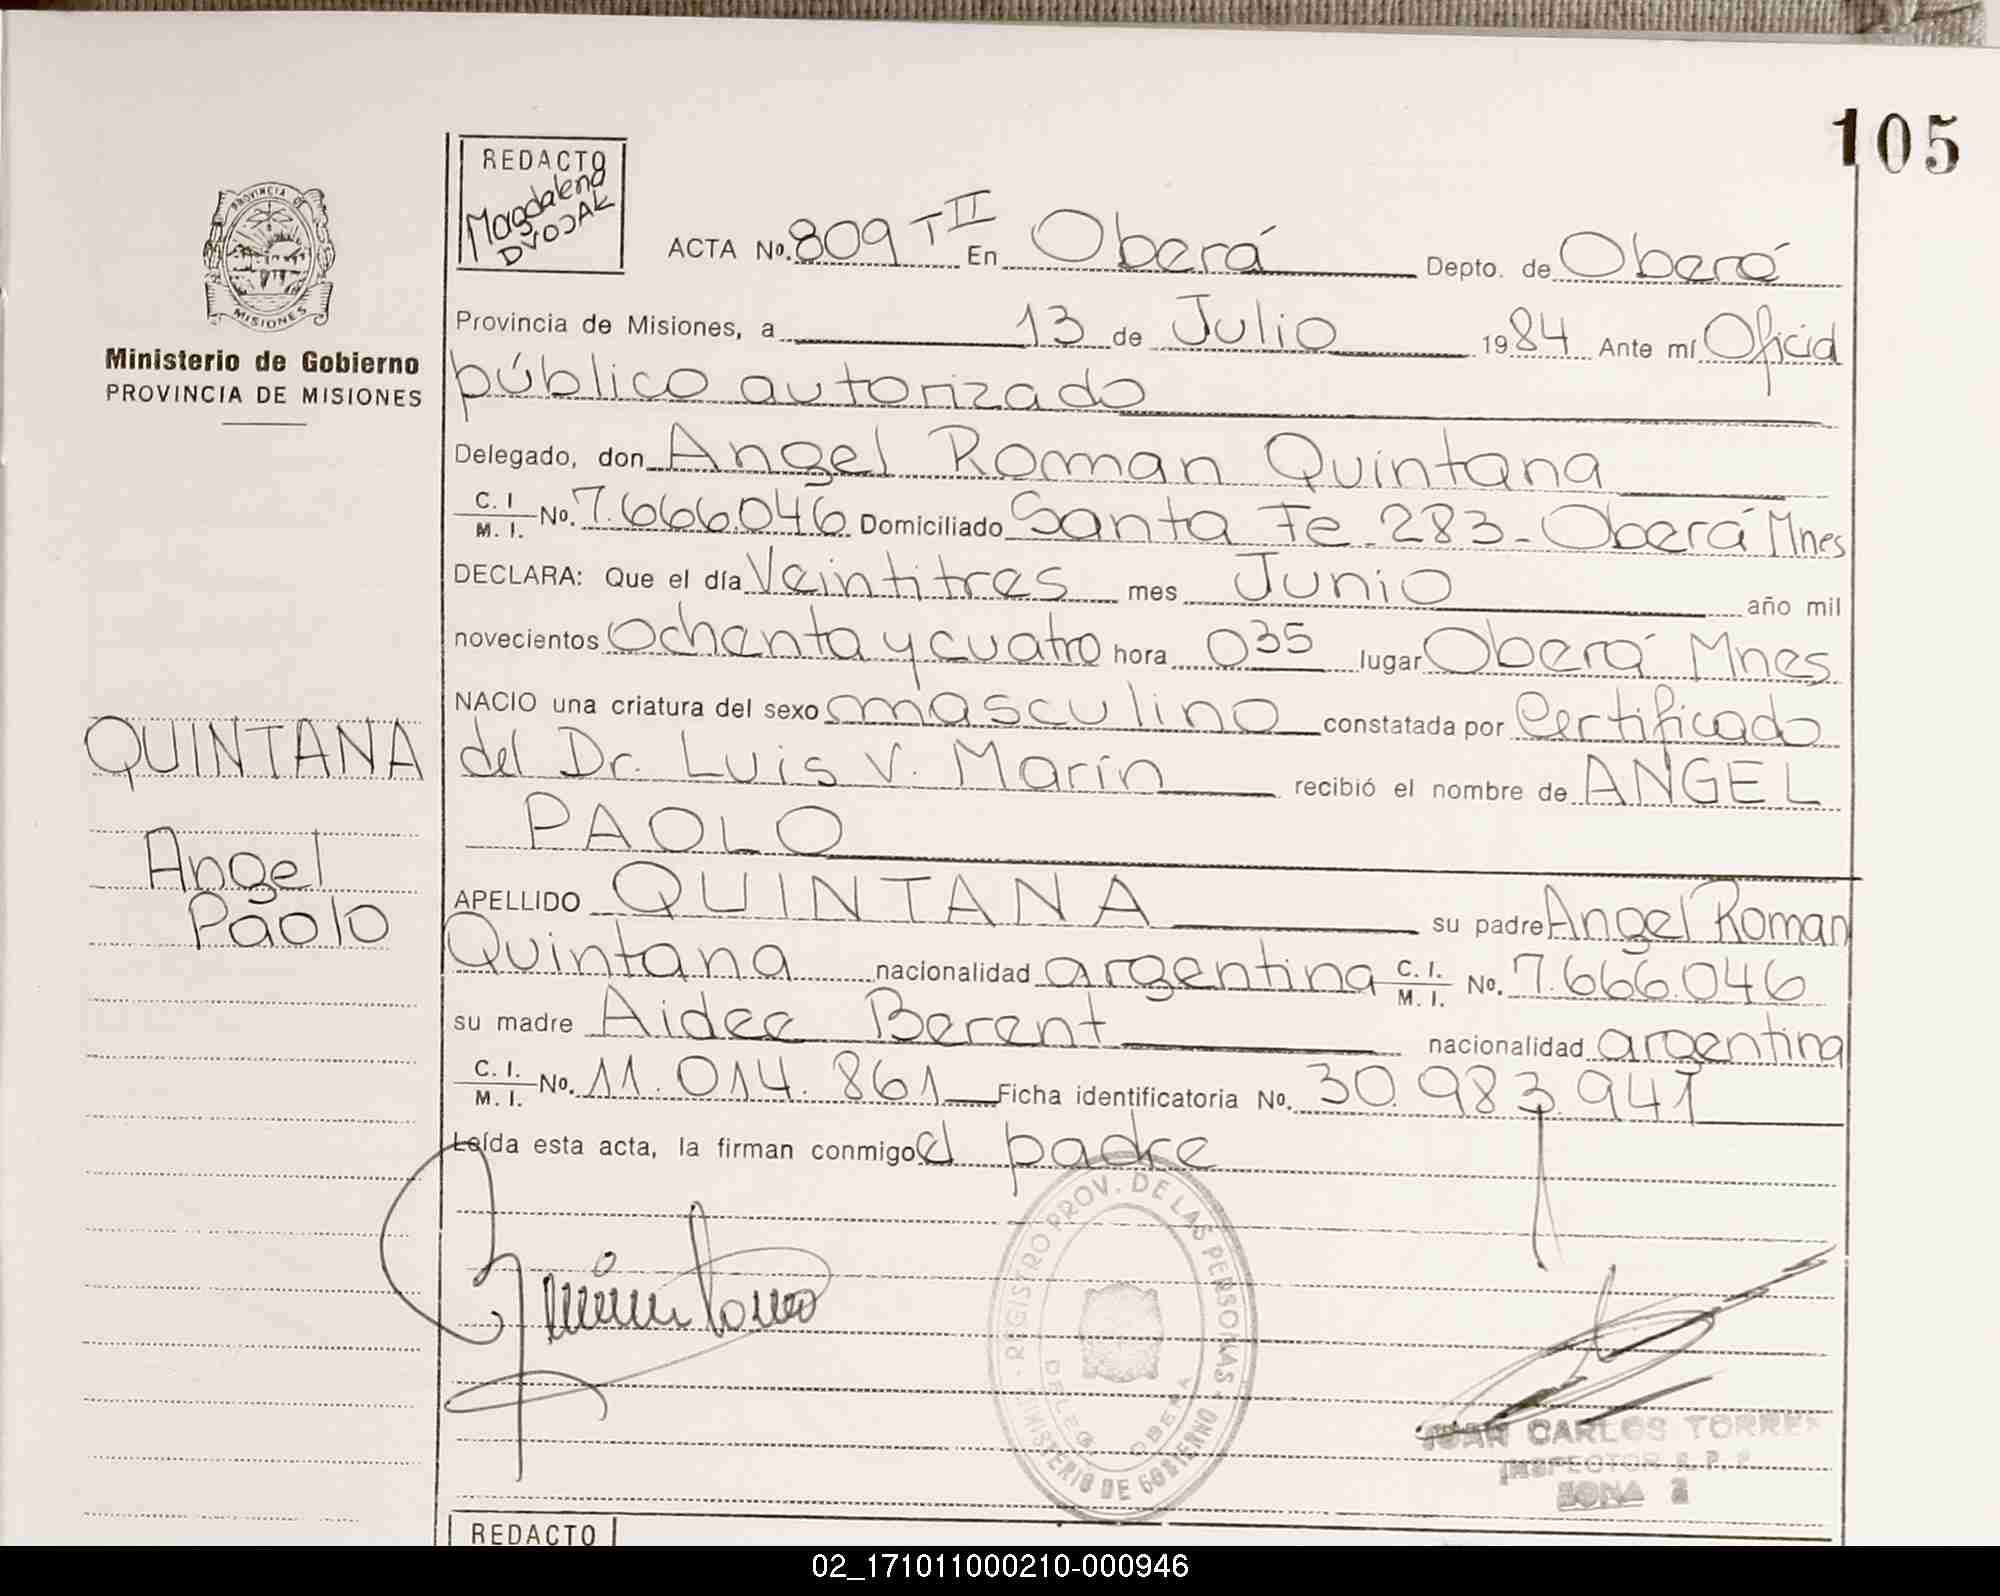 105
REDACTO
Magdalena
DVOJAK
PROVINCIA DE
MISIONES
Ministerio de Gobierno
PROVINCIA DE MISIONES
ACTA No. 809 T II En Oberá Depto. de Oberá
Provincia de Misiones, a 13 de Julio 1984 Ante mí Oficial
público autorizado
Delegado, don Angel Roman Quintana
C. I. M. I. No. 7.666.046 Domiciliado Santa Fe 283 - Oberá Mnes
DECLARA: Que el día Veintitres mes Junio año mil
novecientos ochenta y cuatro hora 0 35 lugar Oberá Mnes
NACIO una criatura del sexo masculino constatada por Certificado
del Dr. Luis V. Marín recibió el nombre de ANGEL
PAOLO
QUINTANA
Angel
Paolo
APELLIDO QUINTANA su padre Angel Roman
Quintana nacionalidad argentina C. I. M. I. No. 7.666.046
su madre Aidee Berent nacionalidad argentina
C. I. M. I. No. 11.014.861 Ficha identificatoria No. 30.983.941
Leída esta acta, la firman conmigo el padre
REGISTRO PROV. DE LAS PERSONAS
MINISTERIO DE GOBIERNO
DELEG. OBERA
JUAN CARLOS TORRES
INSPECTOR R. P. P.
ZONA 2
REDACTO
02_171011000210-000946